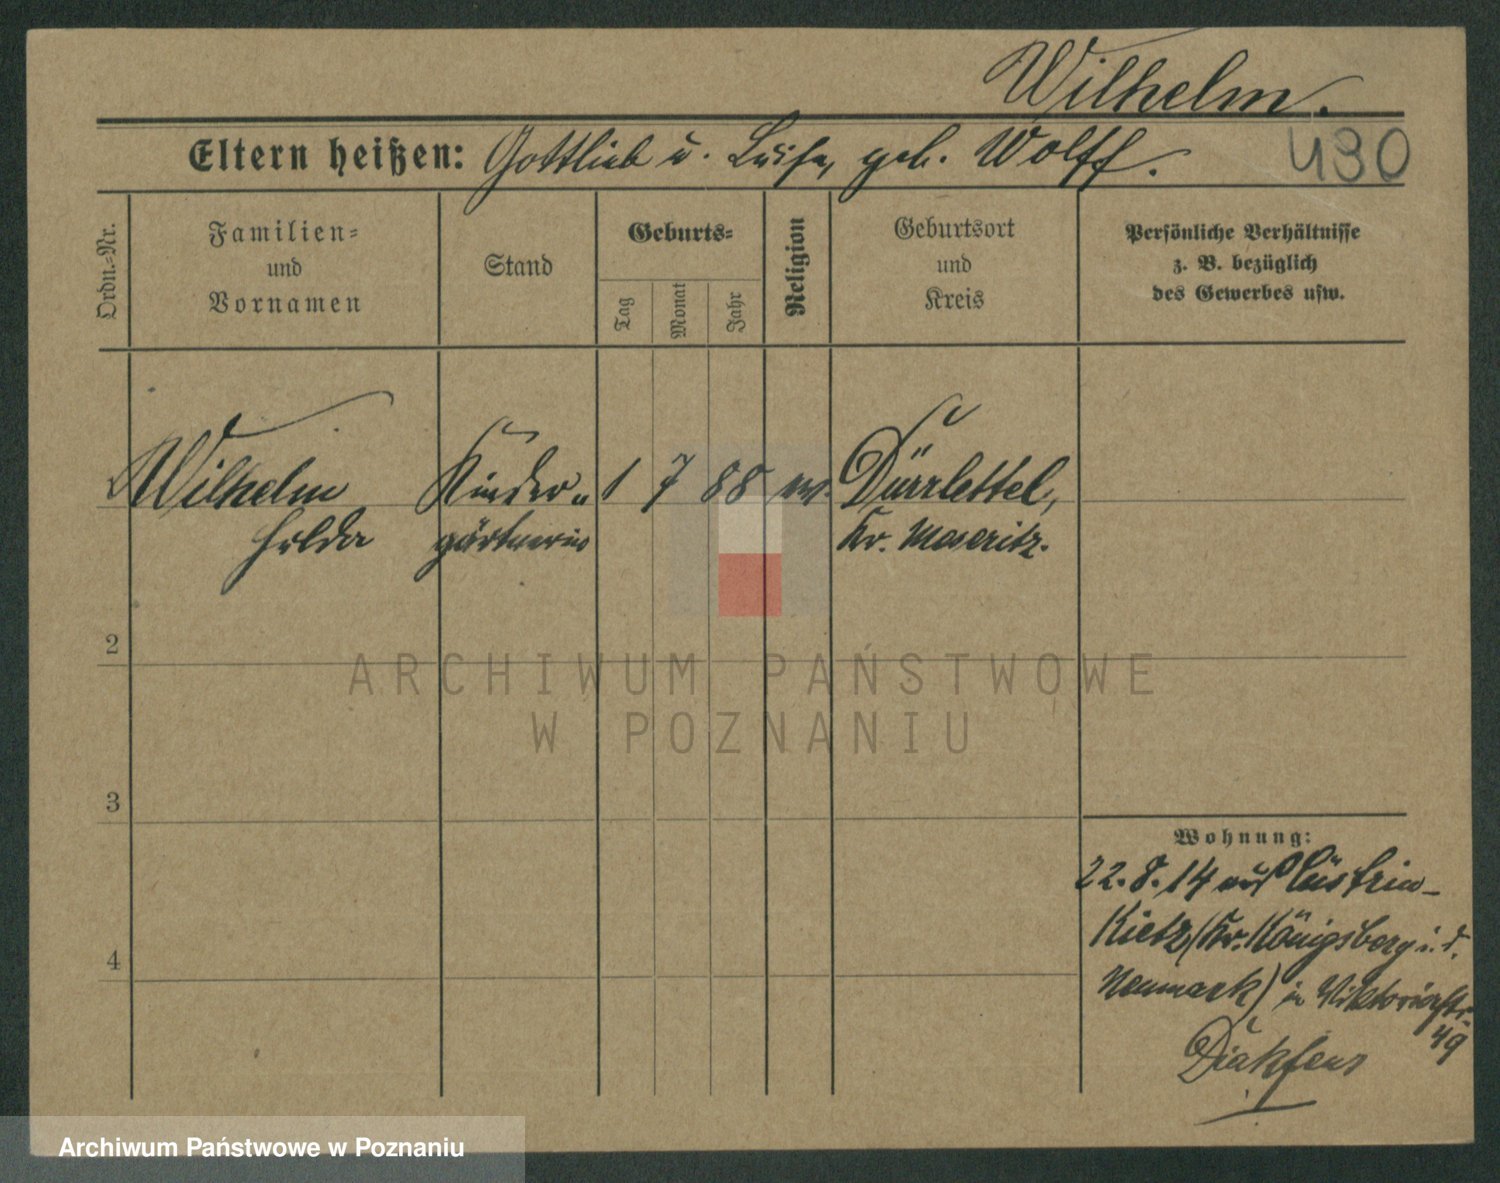 Wilhelm.
Eltern heißen: Gottlieb u. Luise, geb. Wolff.
430
Ordn.-Nr.
Familien-
und
Vornamen
Stand
Geburts-
Tag
Monat
Jahr
Religion
Geburtsort
und
Kreis
Persönliche Verhältnisse
z. B. bezüglich
des Gewerbes usw.
Wilhelm Kinder- 1 7 88 ev. Dürrlettel,
Hulda gärtnerin Kr. Meseritz.
2
ARCHIWUM PAŃSTWOWE
W POZNANIU
3
Wohnung:
22. 8. 14 aus Cüstrin-
Kietz (Kr. Königsberg i. d.
Neumark) in Viktoriastr.
49
4
Archiwum Państwowe w Poznaniu